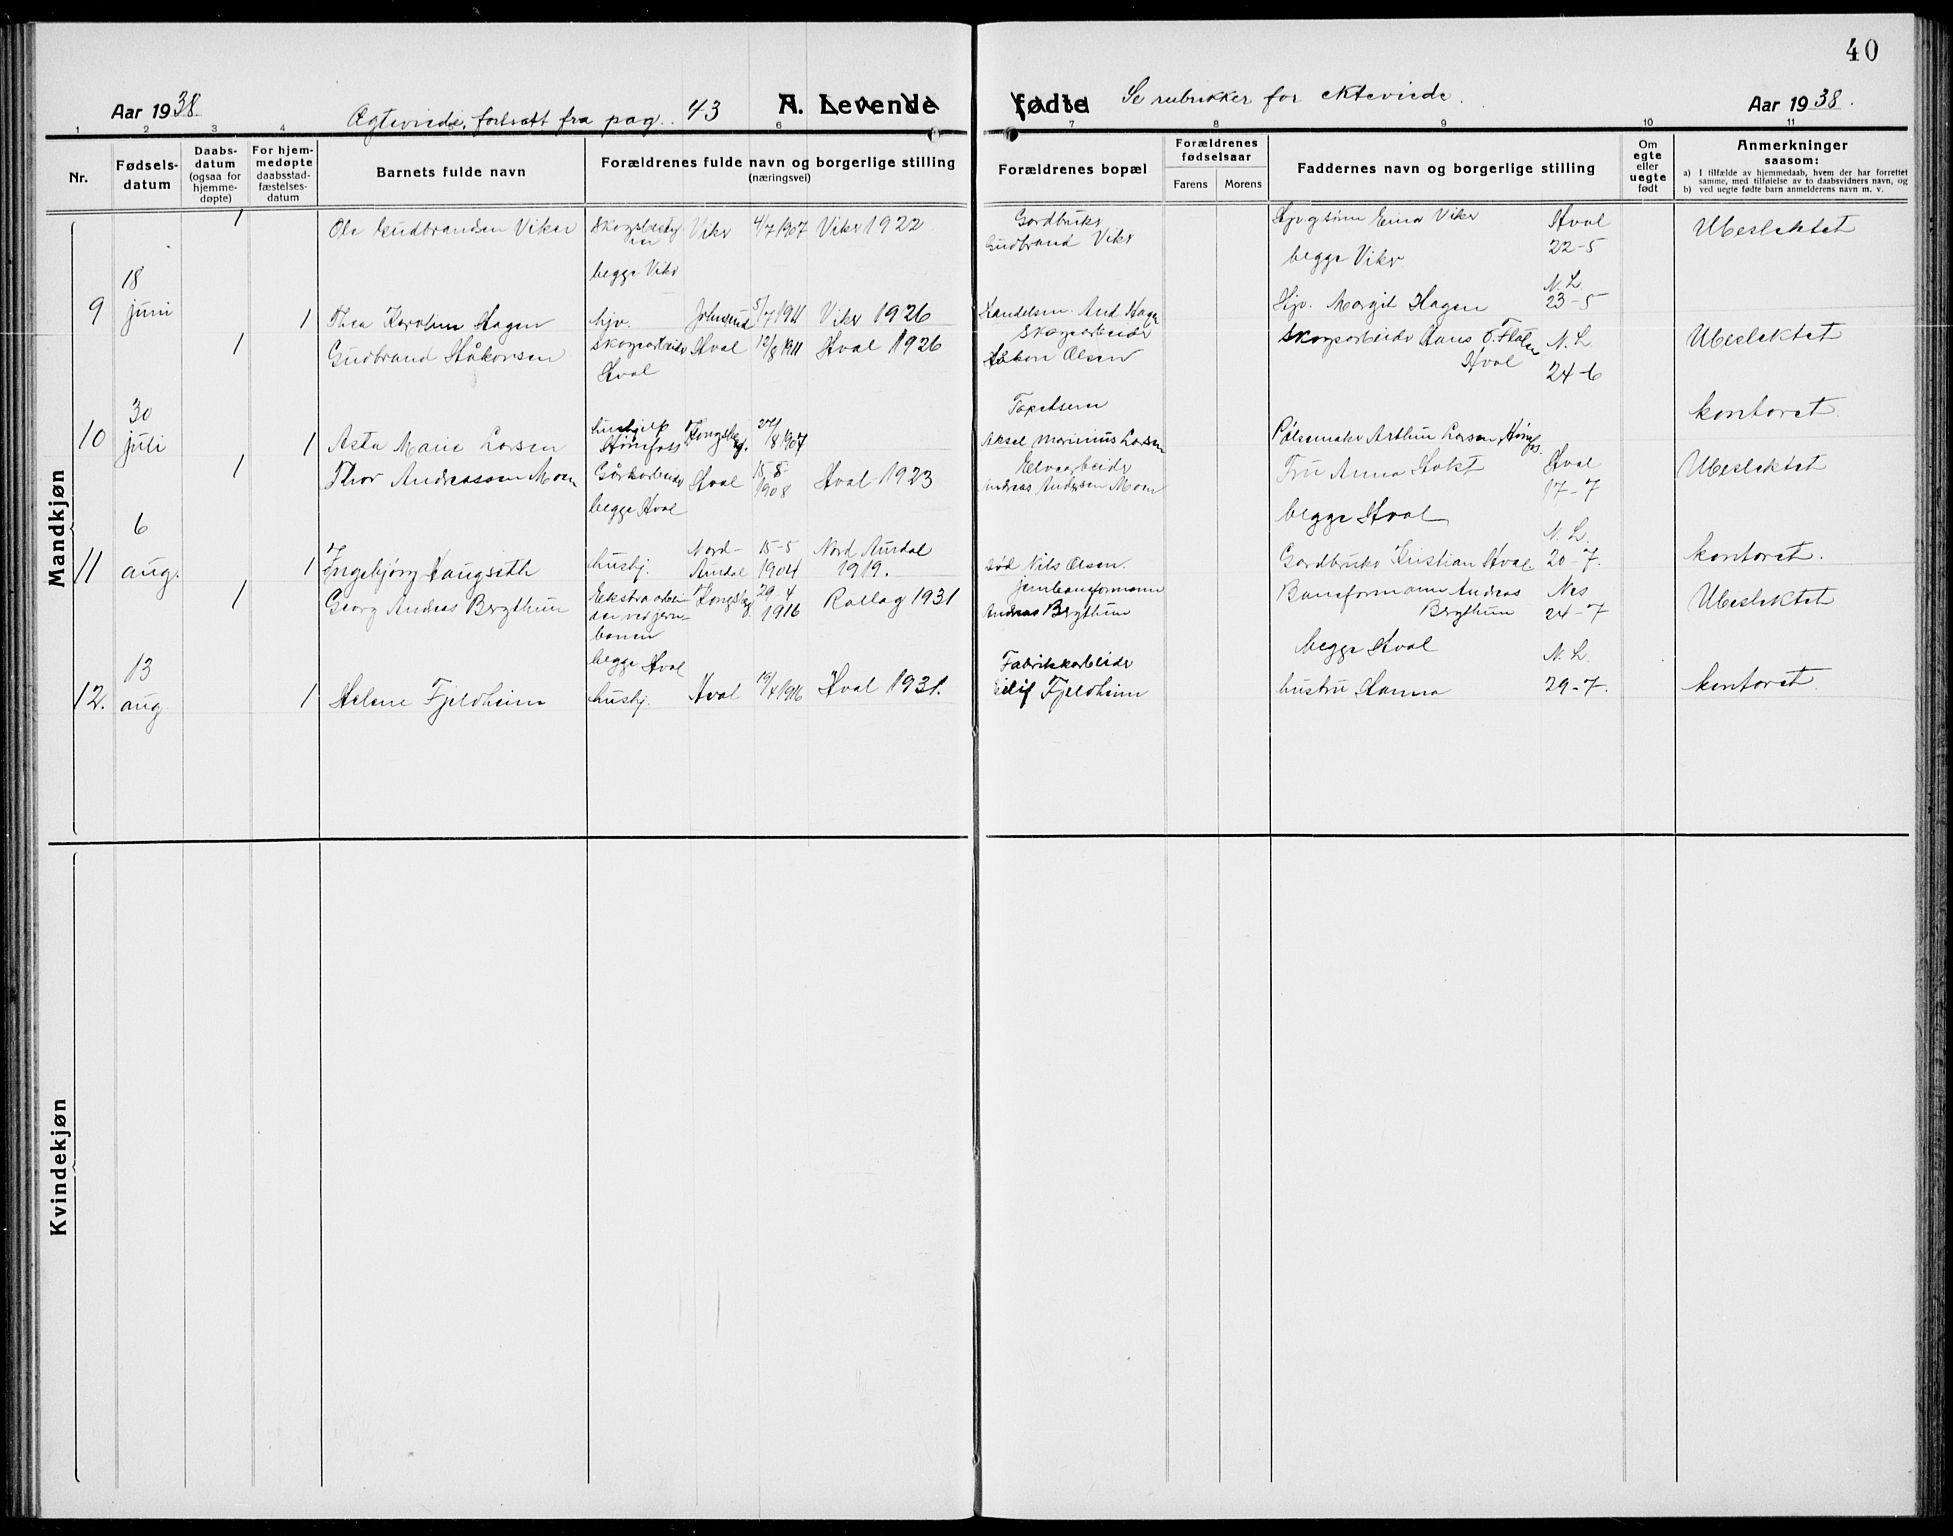 40
Aar 1938
Ægteviede, fortsatt fra pag. 43
A. Levende
fødte
Se rubrikker for ekteviede.
Aar 1938.
1 2 3 4 6 7 8 9 10 11
Nr.
Fødsels-
datum
Daabs-
datum
(ogsaa for
hjemme-
døpte)
For hjem-
medøpte
daabsstad-
fæstelses-
datum
Barnets fulde navn
Forældrenes fulde navn og borgerlige stilling
(næringsvei)
Forældrenes bopæl
Forældrenes
fødselsaar
Farens
Morens
Faddernes navn og borgerlige stilling
Om
egte
eller
uegte
født
Anmerkninger
saasom:
a) I tilfælde av hjemmedaab, hvem der har forrettet
samme, med tilføielse av to daabsvidners navn, og
b) ved uegte fødte barn anmelderens navn m. v.
Mandkjøn
9
18
juni
1
Ole Gudbrandsen Viker
Viker 4/7 1907 Viker 1922
begge Viker
Gardbruker
Gudbrand Viker
Einar Viker
begge Viker
Hval
22-5
N. L.
Ubeslektet
1
Thea Karoline Hagen
hjv.
5/7 1911 Viker 1926
Hjv. Margit Hagen
23-5
10
30
juli
1
Gudbrand Håkonsen
Skogsarbeider Hval 12/8 1911 Hval 1926
Hval
Skogsarbeider
Håkon Olsen
Skogsarbeider Hans O. Flaten
Hval
N. L.
24-6
Ubeslektet
1
Asta Marie Larsen
hushjelp
Hønefoss
Kongsberg.
1907
Tapetserer
Aksel Marinius Larsen
Pølsemaker Arthur Larsen, Hønefoss.
kontoret.
11
6
aug.
1
Thor Andreassen Moen
Gårdarbeider Hval 15-8 1908 Hval 1923
begge Hval
Elvearbeider
Andreas Andersen Moen
Fru Anna
begge Hval
Hval
17-7
N. L.
Ubeslektet
1
Ingebjørg Haugseth
hushj.
Nord-
Aurdal
15-5
1904
Nord Aurdal
1919.
død Nils Olsen.
Gardbruker Kristian Hval
20-7.
kontoret.
12.
13
aug
1
Georg Andreas Bergthun
Ekstraarbei-
der ved jern-
banen
begge Hval
Kongsberg
29-4
1916
Rollag 1931
jernbaneformann
Andreas Bergthun
Baneformann Andreas
Bergthun
begge Hval
Nes
24-7
N. L.
Ubeslektet
1
Helene Fjeldheim
hushj. Hval 1916 Hval 1931.
Fabrikkarbeider
Eilif Fjeldheim
hustru Hanna
29-7.
kontoret.
Kvindekjøn